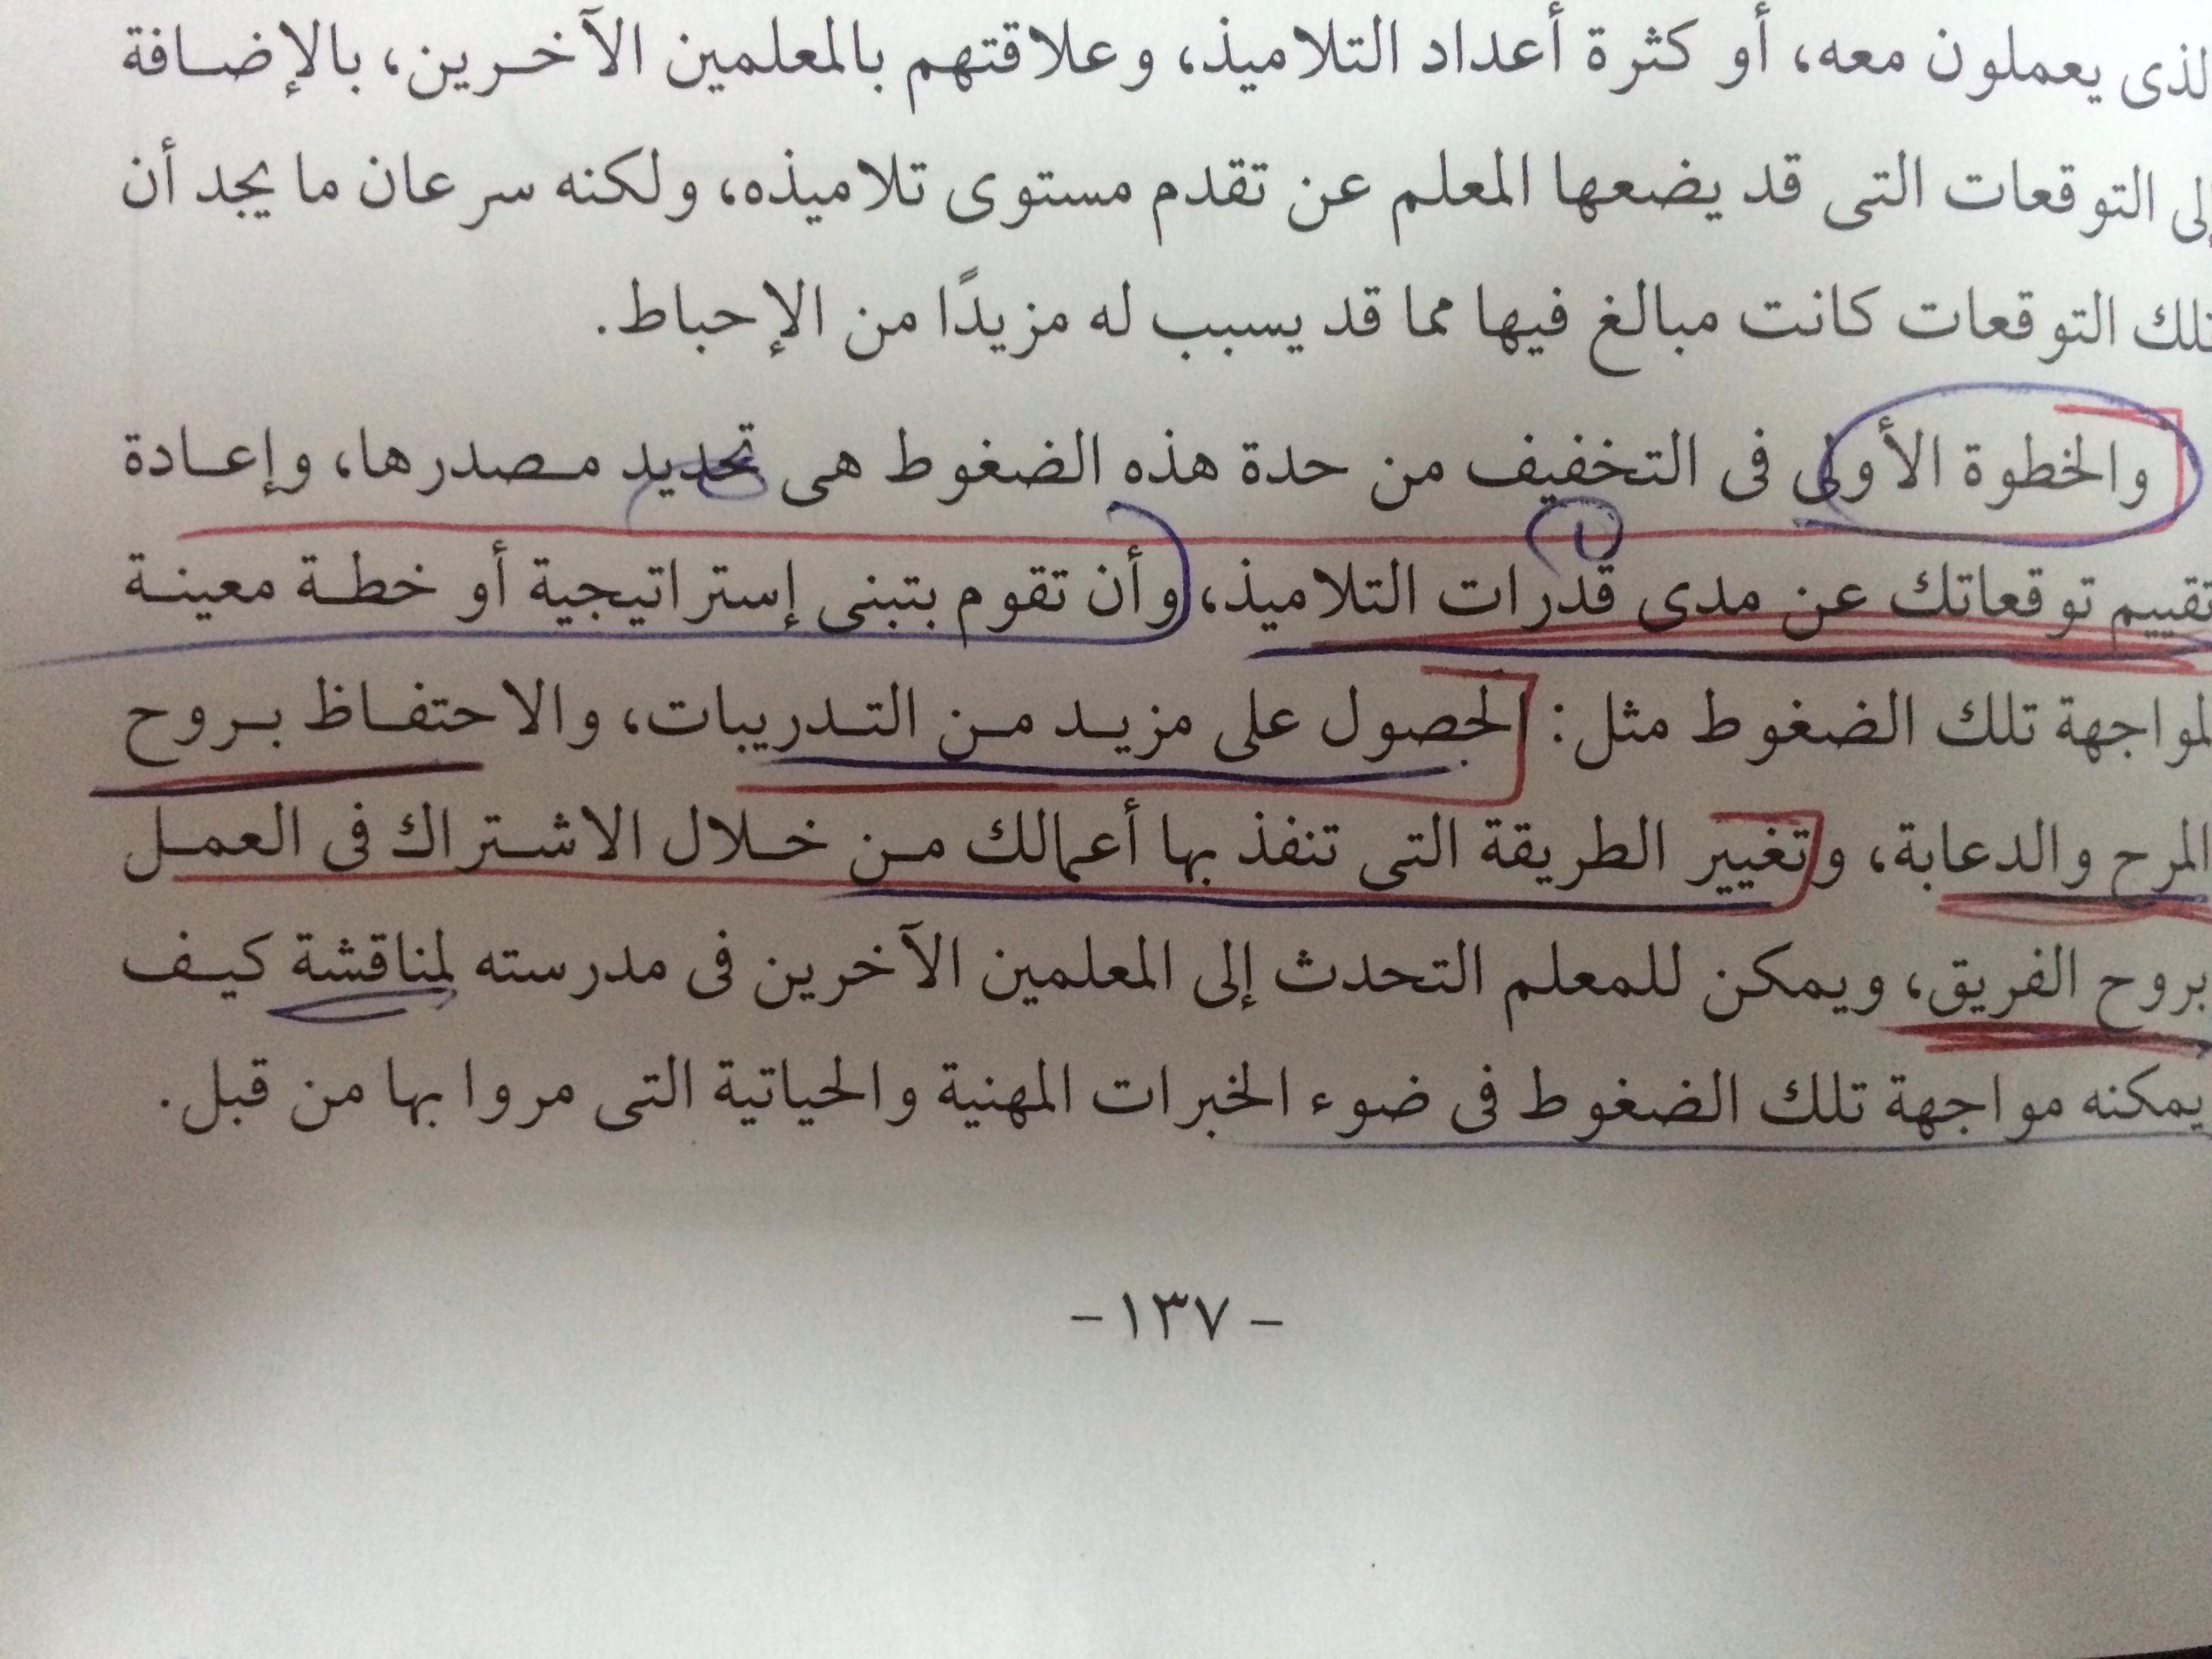 لذى يعملون معه، أو كثرة أعداد التلاميذ، وعلاقتهم بالمعلمين الآخرين، بالإضافة
إلى التوقعات التى قد يضعها المعلم عن تقدم مستوى تلاميذه، ولكنه سرعان ما يجد أن
تلك التوقعات كانت مبالغ فيها مما قد يسبب له مزيدًا من الإحباط.
والخطوة الأولى فى التخفيف من حدة هذه الضغوط هى تحديد مصدرها، وإعادة
تقييم توقعاتك عن مدى قدرات التلاميذ، وأن تقوم بتبنى إستراتيجية أو خطة معينة
لمواجهة تلك الضغوط مثل: الحصول على مزيد من التدريبات، والاحتفاظ بروح
المرح والدعابة، وتغيير الطريقة التى تنفذ بها أعمالك من خلال الاشتراك فى العمل
بروح الفريق، ويمكن للمعلم التحدث إلى المعلمين الآخرين فى مدرسته لمناقشة كيف
يمكنه مواجهة تلك الضغوط فى ضوء الخبرات المهنية والحياتية التى مروا بها من قبل.
- ١٣٧ -